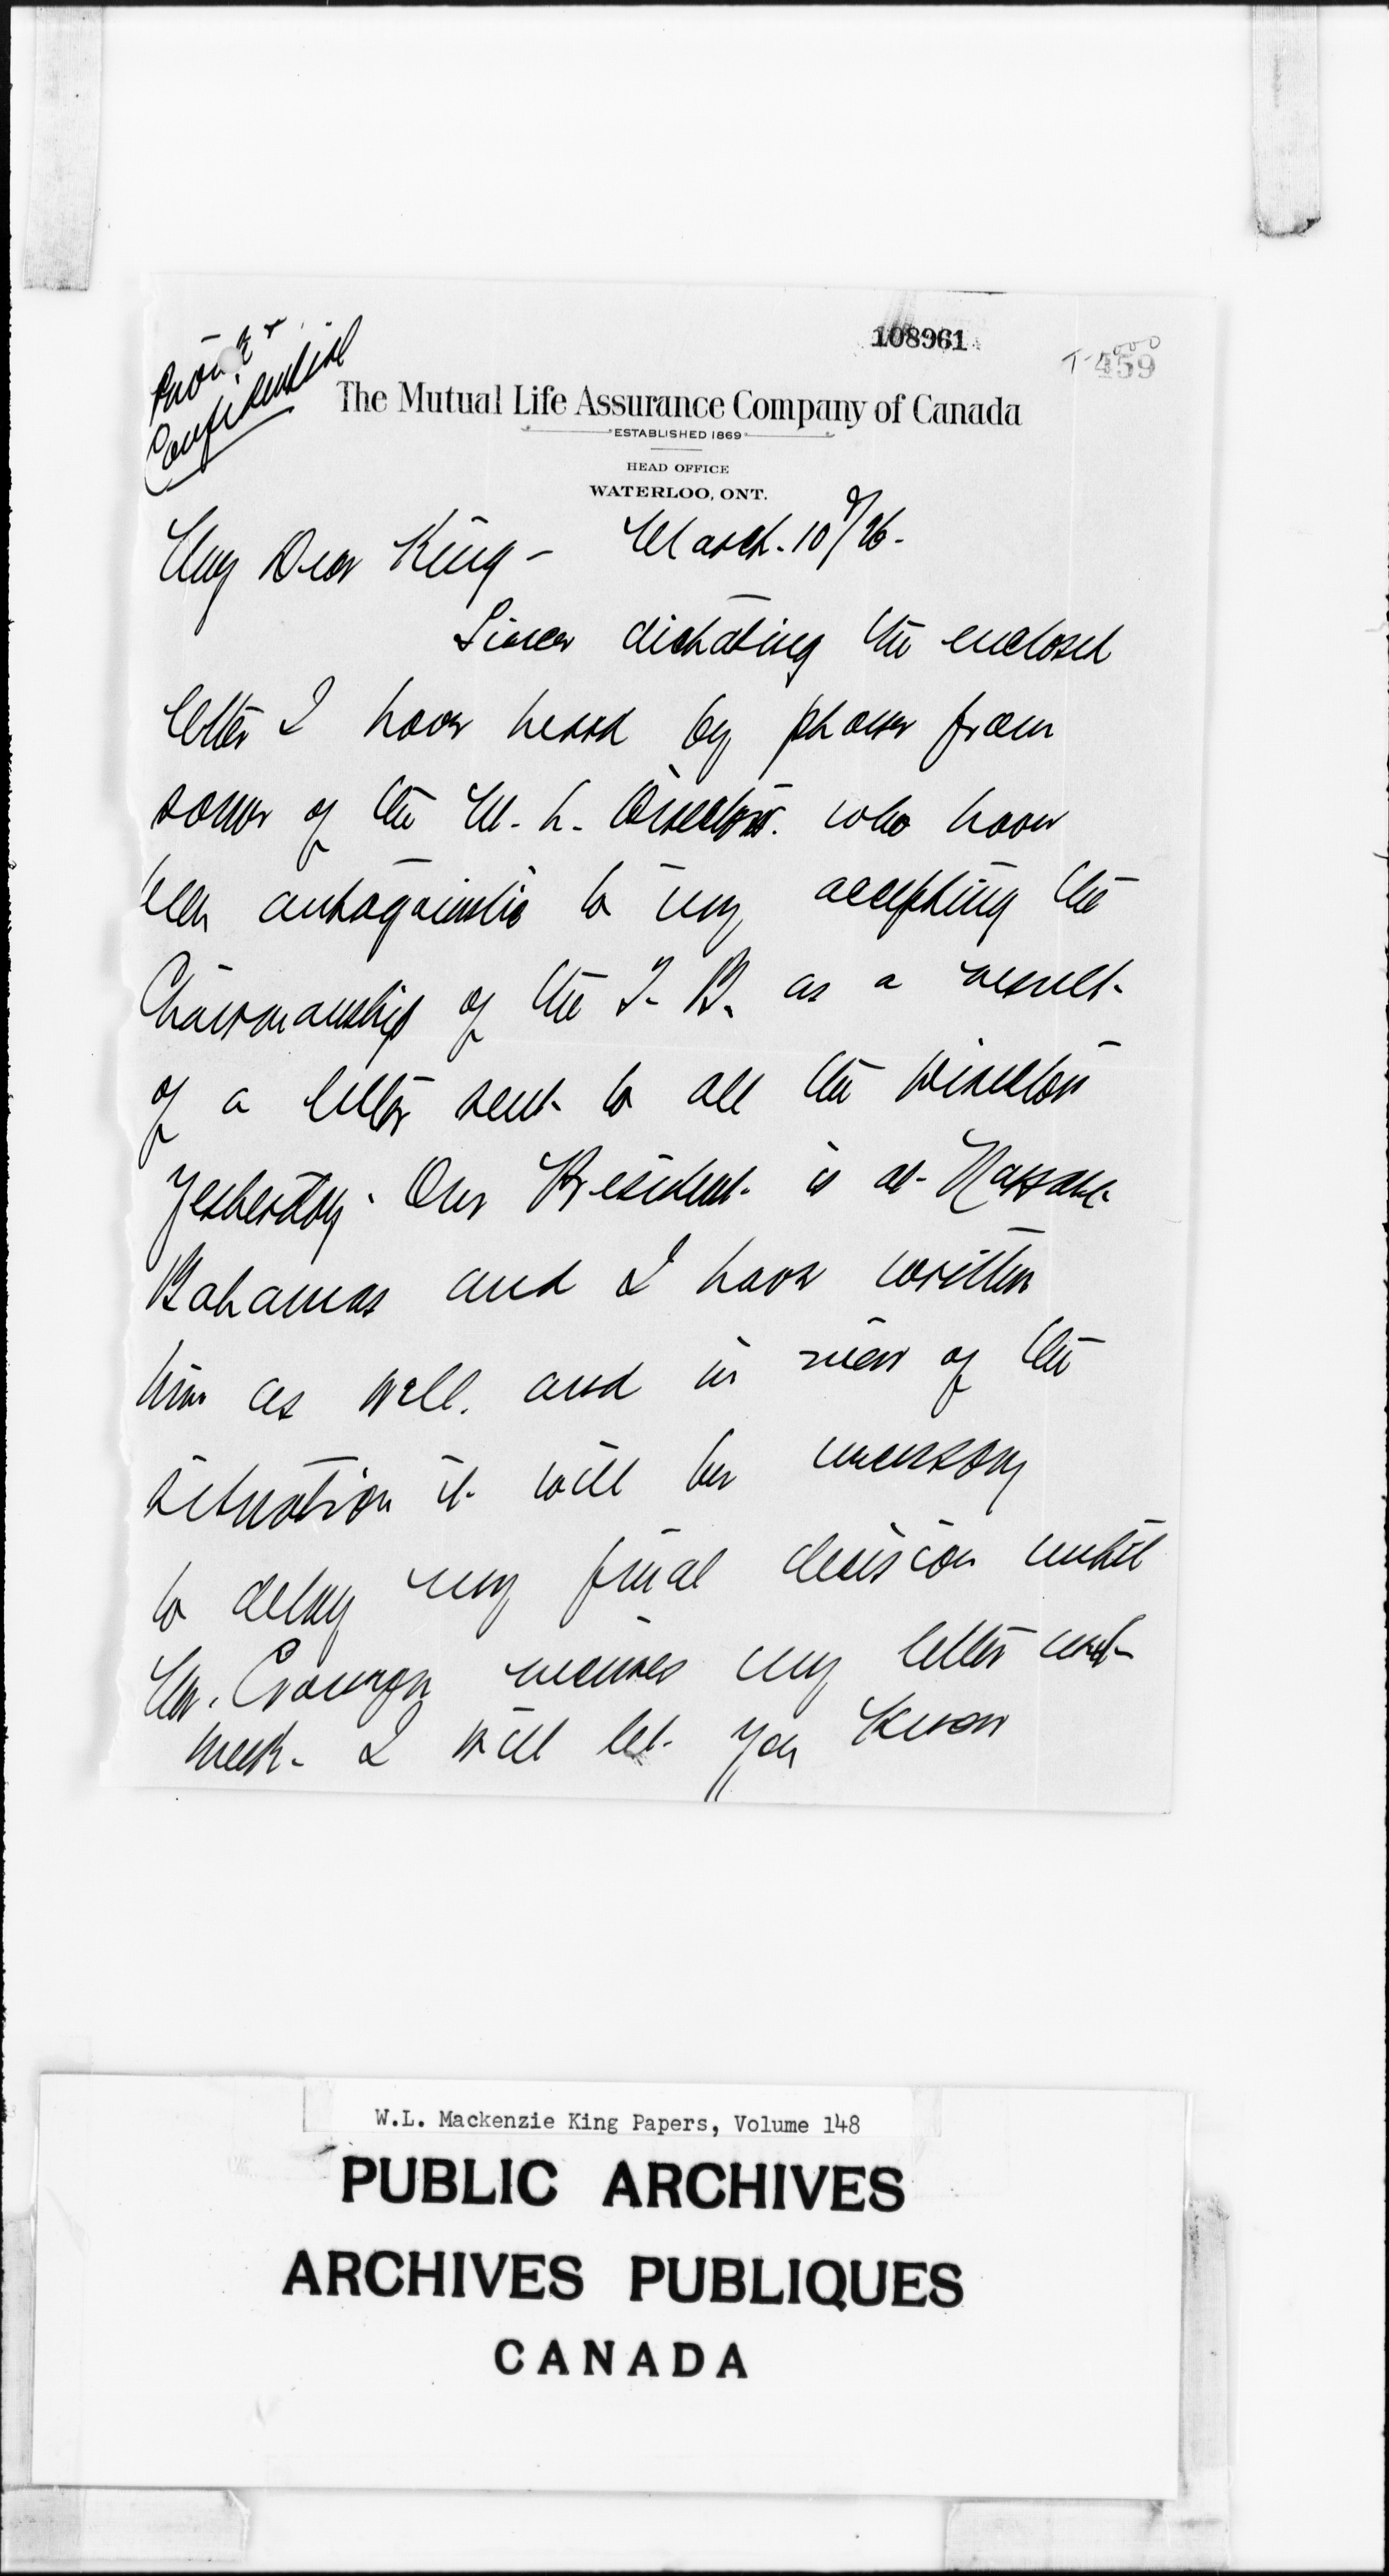 108961
T-4000
459
Private &
Confidential
The Mutual Life Assurance Company of Canada
ESTABLISHED 1869
HEAD OFFICE
WATERLOO, ONT.
March. 10th/26.
My Dear King -
Since dictating the enclosed
letter I have heard by phone from
some of the M. L. Directors. who have
been antagonistic to my accepting the
Chairmanship of the T. B. as a result
of a letter sent to all the Directors
yesterday. Our President is at Nassau
Bahamas and I have written
him as well. and in view of the
situation it will be necessary
to delay my final decision until
Mr. receives my letter next
week. I will let you know
W.L. Mackenzie King Papers, Volume 148
PUBLIC ARCHIVES
ARCHIVES PUBLIQUES
CANADA